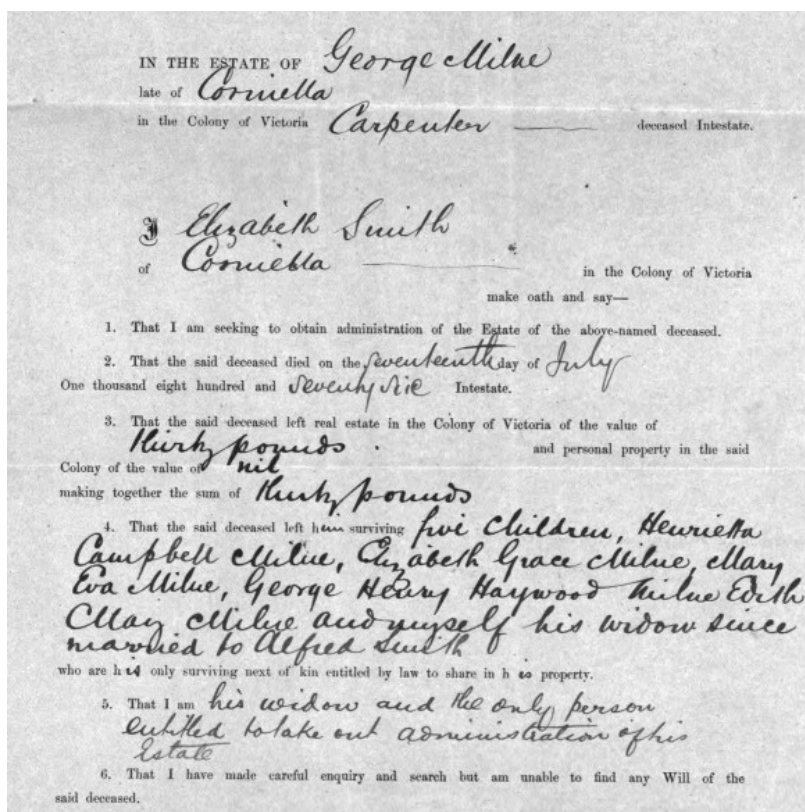 IN THE ESTATE OF George Milne
late of Corinella
in the Colony of Victoria Carpenter deceased Intestate.
I Elizabeth Smith
of Corinella in the Colony of Victoria
make oath and say—
1. That I am seeking to obtain administration of the Estate of the above-named deceased.
2. That the said deceased died on the seventeenth day of July
One thousand eight hundred and seventy six Intestate.
3. That the said deceased left real estate in the Colony of Victoria of the value of
Thirty pounds. and personal property in the said
Colony of the value of nil
making together the sum of Thirty pounds
4. That the said deceased left him surviving five children, Henrietta
Campbell Milne, Elizabeth Grace Milne, Mary
Eva Milne, George Henry Haywood Milne Edith
May Milne and myself his widow since
married to Alfred Smith
who are his only surviving next of kin entitled by law to share in his property.
5. That I am his widow and the only person
entitled to take out administration of his
Estate
6. That I have made careful enquiry and search but am unable to find any Will of the
said deceased.